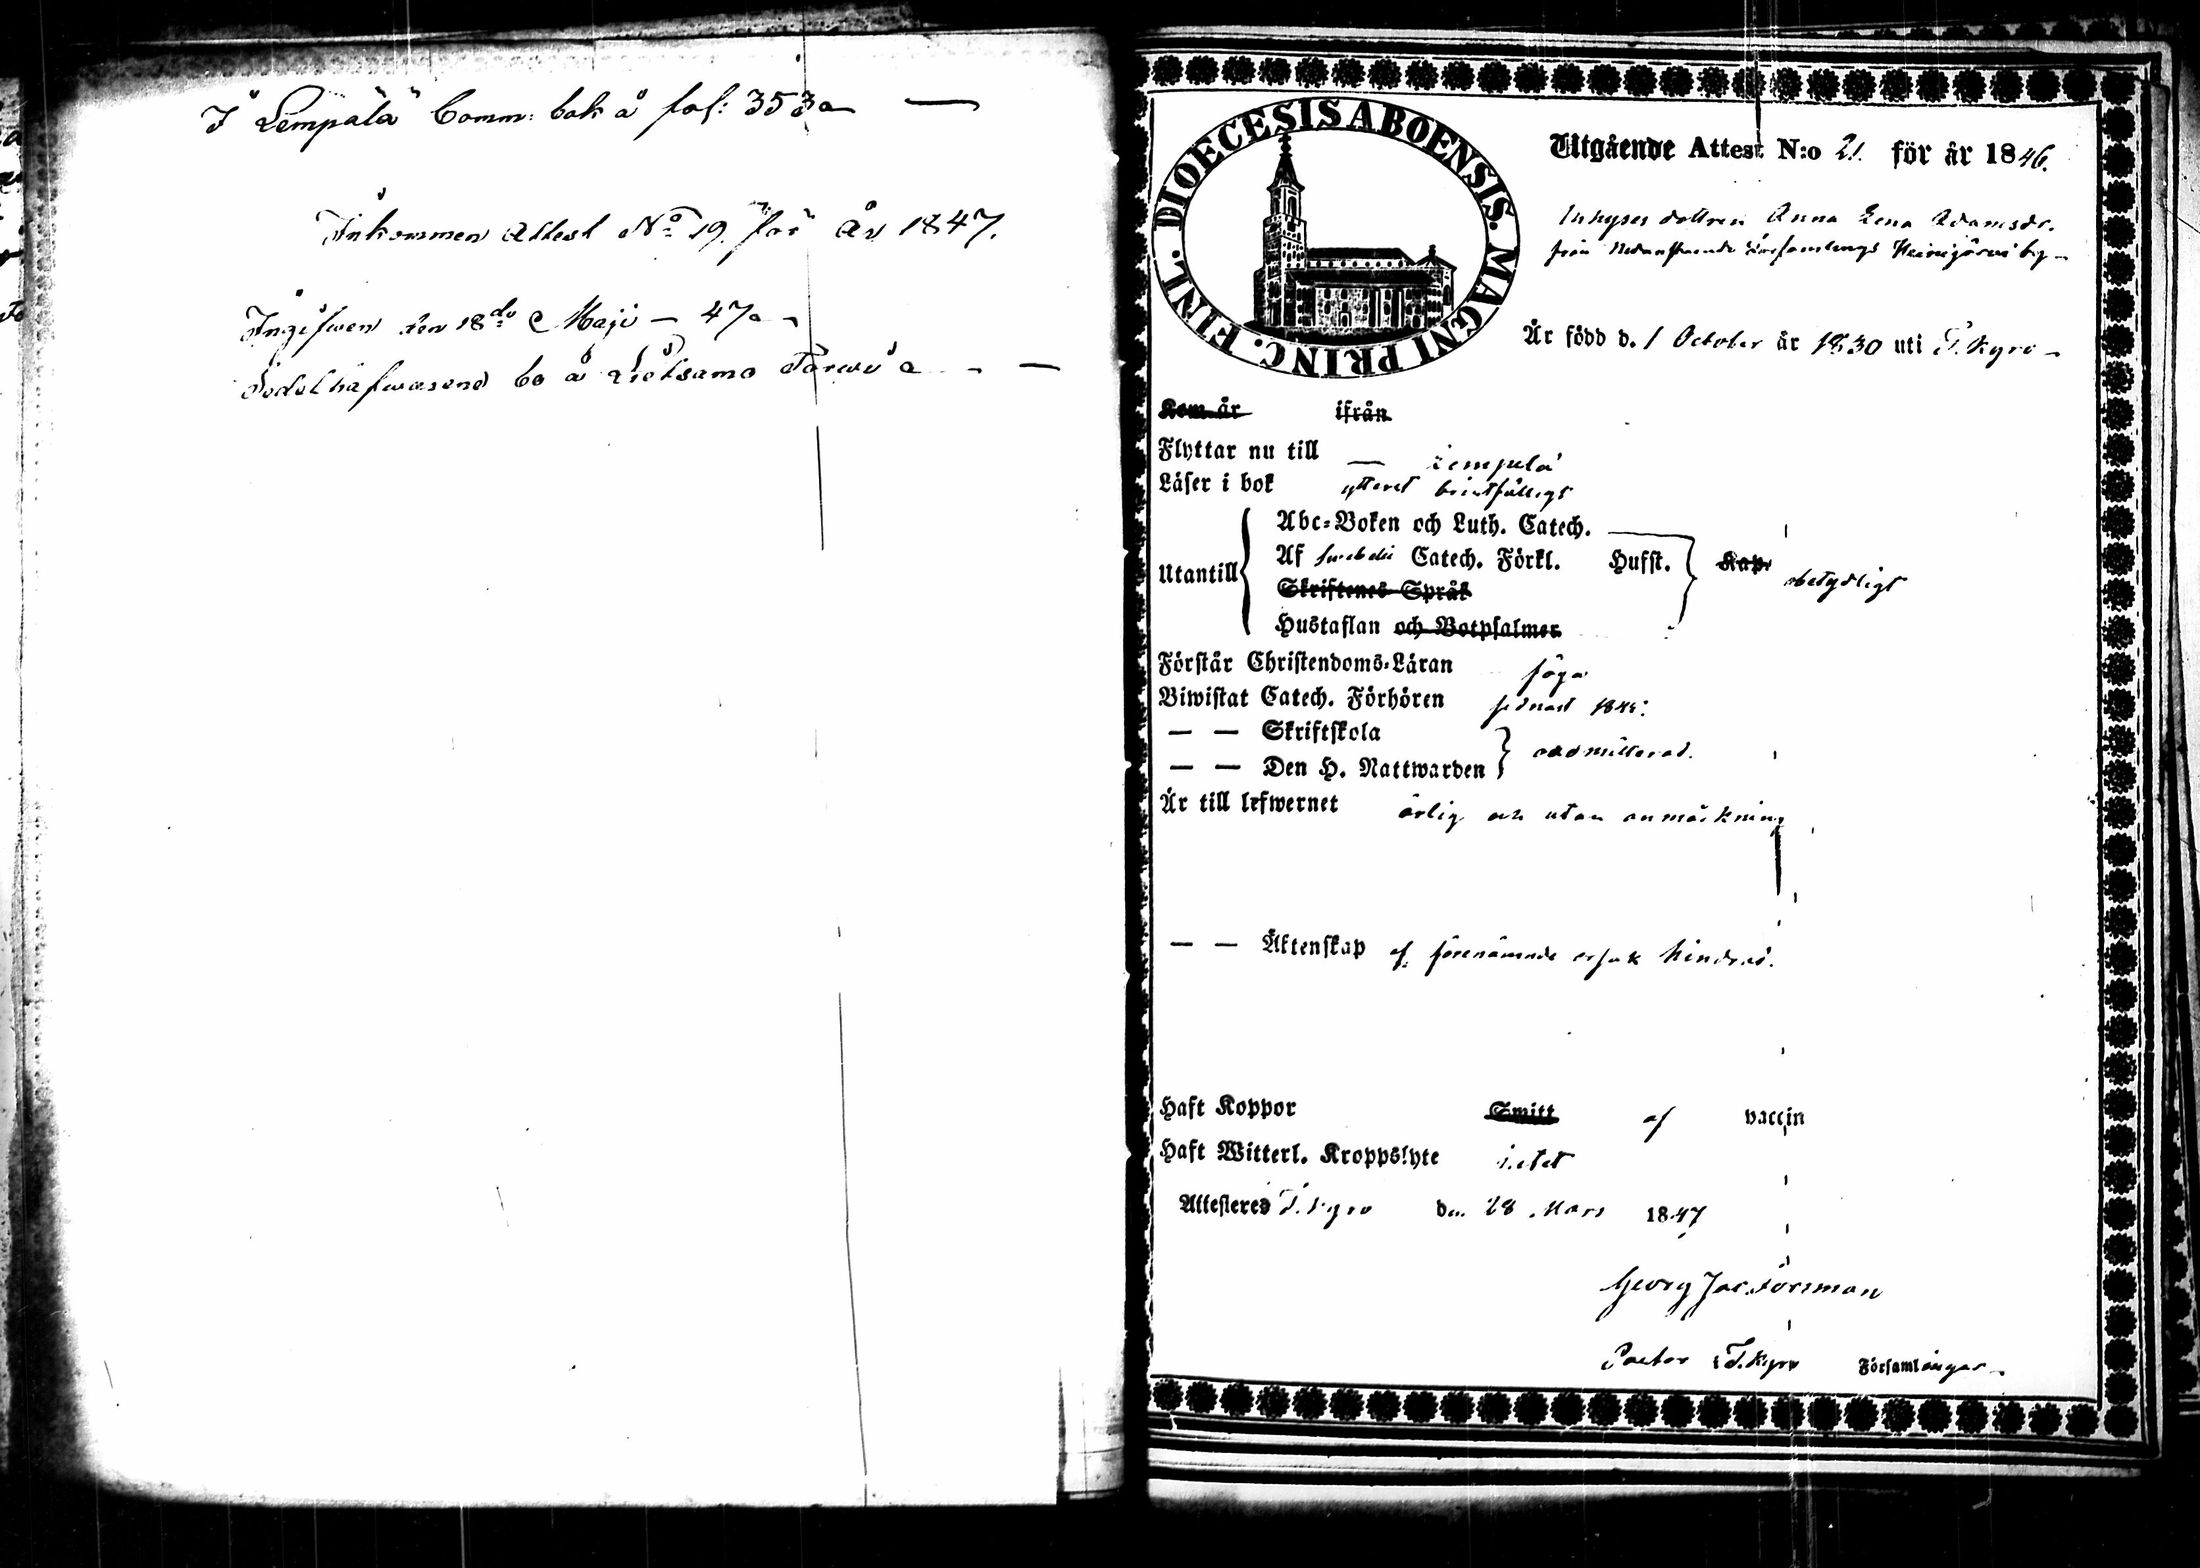 I Lempälä Comm: bok å fol: 353a
Inkommen Attest No 19. för År 1847.
Ingifwen den 18de Maji — 47
bo å
DIOECESIS ABOENSIS. MAGNI PRINC. FINL.
Utgående Attest N:o 21. för år 1846.
Inhyses dottren Anna Lena Adamsdr.
från Nedanstående Församlings Heinijärvi by
Är född d. 1 October år 1830 uti T.kyro
Kom år ifrån
Flyttar nu till — Lempälä
Läser i bok ytterst bristfälligt
Utantill
Abc-Boken och Luth. Catech.
Af Svebelii Catech. Förkl. Husst. Kap.
obetydligt
Skriftenes Språk
Hustaflan och Botpsalmer
Förstår Christendoms-Läran föga
Biwistat Catech. Förhören sednast
— — Skriftskola
oadmitterad.
— — Den H. Nattwarden
Är till lefwernet ärlig och utan anmärkning
— — Äktenskap af förenämnde orsak hindrad.
Haft Koppor Smitt af vaccin
Haft Witterl. Kroppslyte intet
Attesteres T.kyro den 28 Mars 1847
Georg Jac. Forsman
Pastor i T.kyro Församlingar